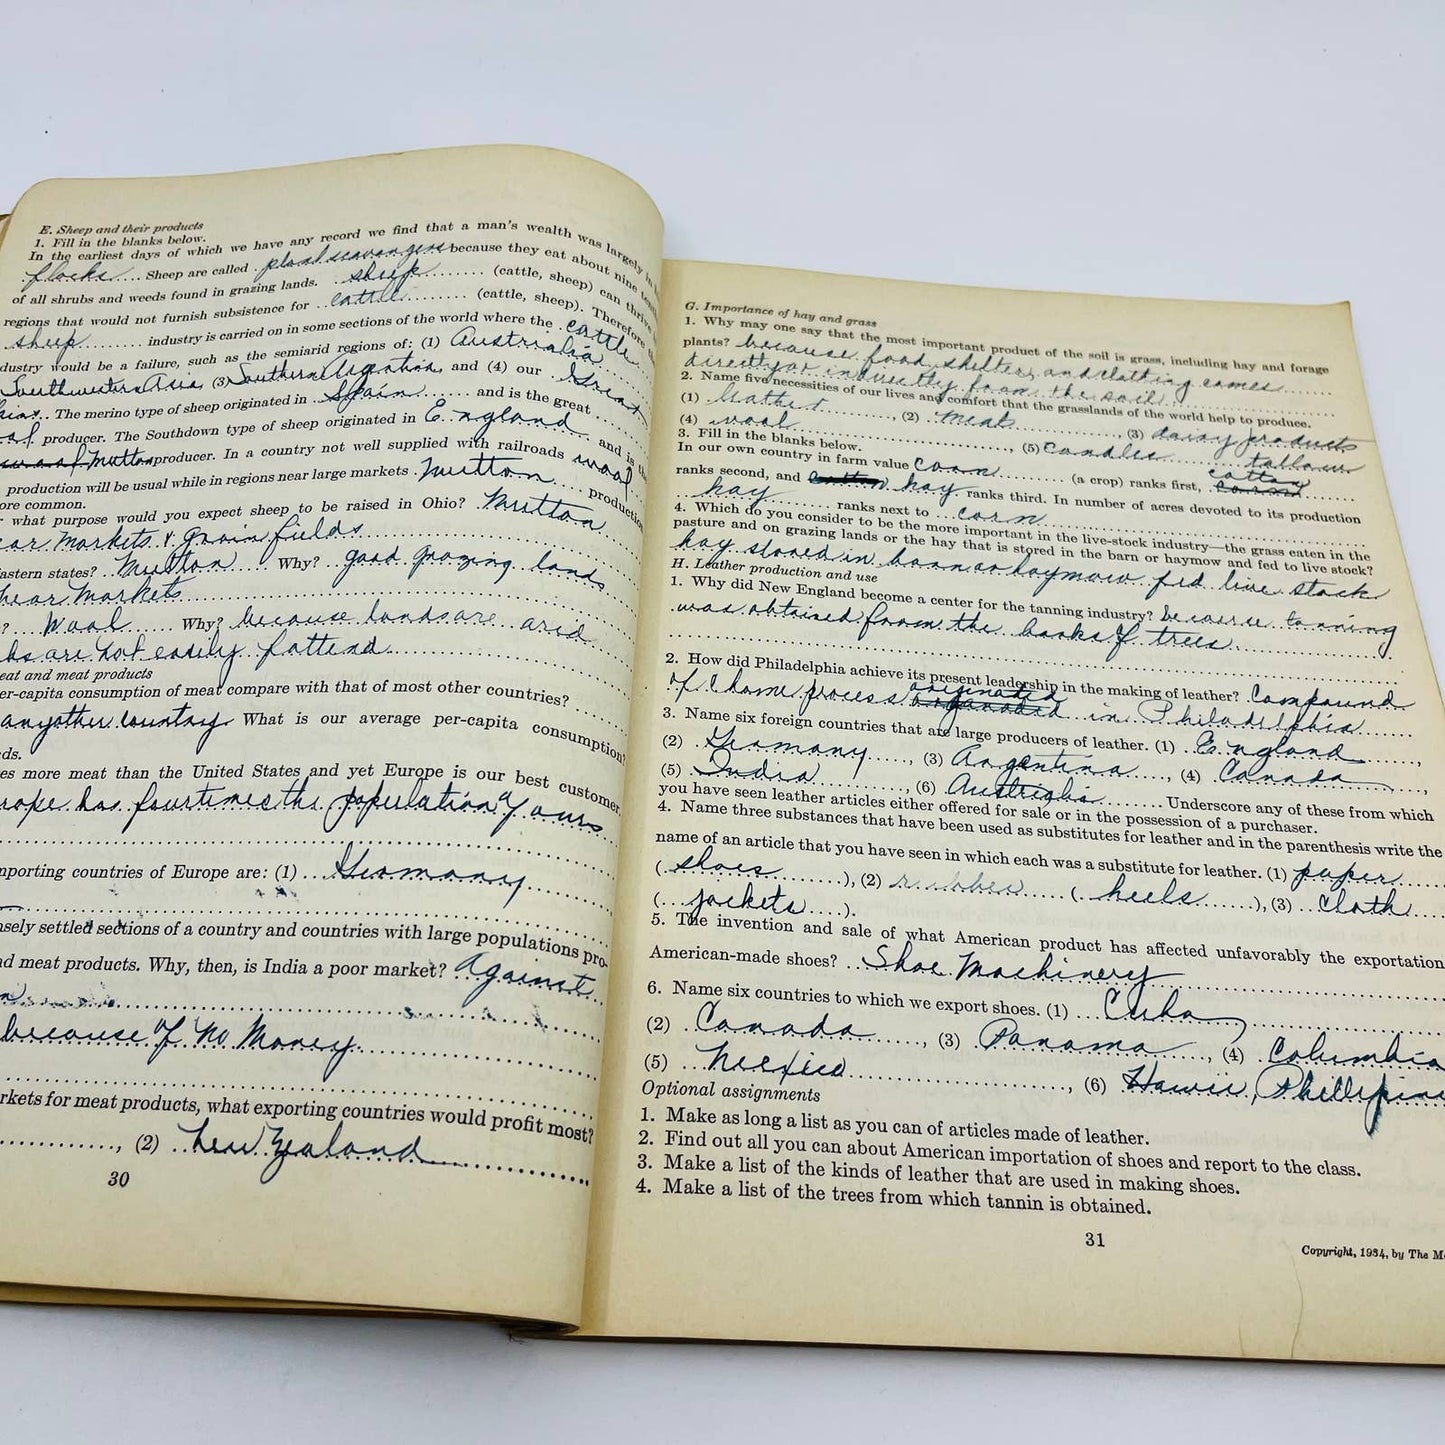 E. Sheep and their products
1. Fill in the blanks below.
In the earliest days of which we have any record we find that a man's wealth was largely in
flocks. Sheep are called plant scavangers because they eat about nine tenths
of all shrubs and weeds found in grazing lands. sheep (cattle, sheep) can thrive
regions that would not furnish subsistence for cattle (cattle, sheep). Therefore
sheep industry is carried on in some sections of the world where the cattle
dustry would be a failure, such as the semiarid regions of: (1) Australia
Southwestern Asia (3) Southern Argentina and (4) our Great
The merino type of sheep originated in Spain and is the great
producer. The Southdown type of sheep originated in England and is the
Mutton producer. In a country not well supplied with railroads wool
production will be usual while in regions near large markets Mutton production
ore common.
what purpose would you expect sheep to be raised in Ohio? Mutton
ear markets & grain fields
astern states? Mutton Why? good grazing lands
near markets
? Wool Why? because lands are arid
bs are not easily fattend
eat and meat products
er-capita consumption of meat compare with that of most other countries?
any other country What is our average per-capita consumption?
ds.
es more meat than the United States and yet Europe is our best customer.
urope has four times the population of ours
mporting countries of Europe are: (1) Germany
nsely settled sections of a country and countries with large populations pro-
nd meat products. Why, then, is India a poor market? Against
because of no Money
rkets for meat products, what exporting countries would profit most?
(2) New Zealand
30
G. Importance of hay and grass
1. Why may one say that the most important product of the soil is grass, including hay and forage
plants? because food, shelter, and clothing comes
directly or indirectly from the soil.
2. Name five necessities of our lives and comfort that the grasslands of the world help to produce.
(1) leather, (2) meats, (3) dairy products
(4) wool, (5) candles tallow
3. Fill in the blanks below.
In our own country in farm value corn (a crop) ranks first, cotton
ranks second, and hay ranks third. In number of acres devoted to its production
hay ranks next to corn
4. Which do you consider to be the more important in the live-stock industry—the grass eaten in the
pasture and on grazing lands or the hay that is stored in the barn or haymow and fed to live stock?
hay stored in barn or haymow fed live stock
H. Leather production and use
1. Why did New England become a center for the tanning industry? because tanning
was obtained from the barks of trees
2. How did Philadelphia achieve its present leadership in the making of leather? Compound
of Chome process originated in Philadelphia
3. Name six foreign countries that are large producers of leather. (1) England,
(2) Germany, (3) Argentina, (4) Canada,
(5) India, (6) Austrighi. Underscore any of these from which
you have seen leather articles either offered for sale or in the possession of a purchaser.
4. Name three substances that have been used as substitutes for leather and in the parenthesis write the
name of an article that you have seen in which each was a substitute for leather. (1) paper
(shoes), (2) rubber (heels), (3) cloth
(jackets).
5. The invention and sale of what American product has affected unfavorably the exportation
American-made shoes? Shoe Machinery
6. Name six countries to which we export shoes. (1) Cuba
(2) Canada, (3) Panama, (4) Columbia
(5) Mexico, (6) Hawii, Phillipine
Optional assignments
1. Make as long a list as you can of articles made of leather.
2. Find out all you can about American importation of shoes and report to the class.
3. Make a list of the kinds of leather that are used in making shoes.
4. Make a list of the trees from which tannin is obtained.
31
Copyright, 1934, by The M